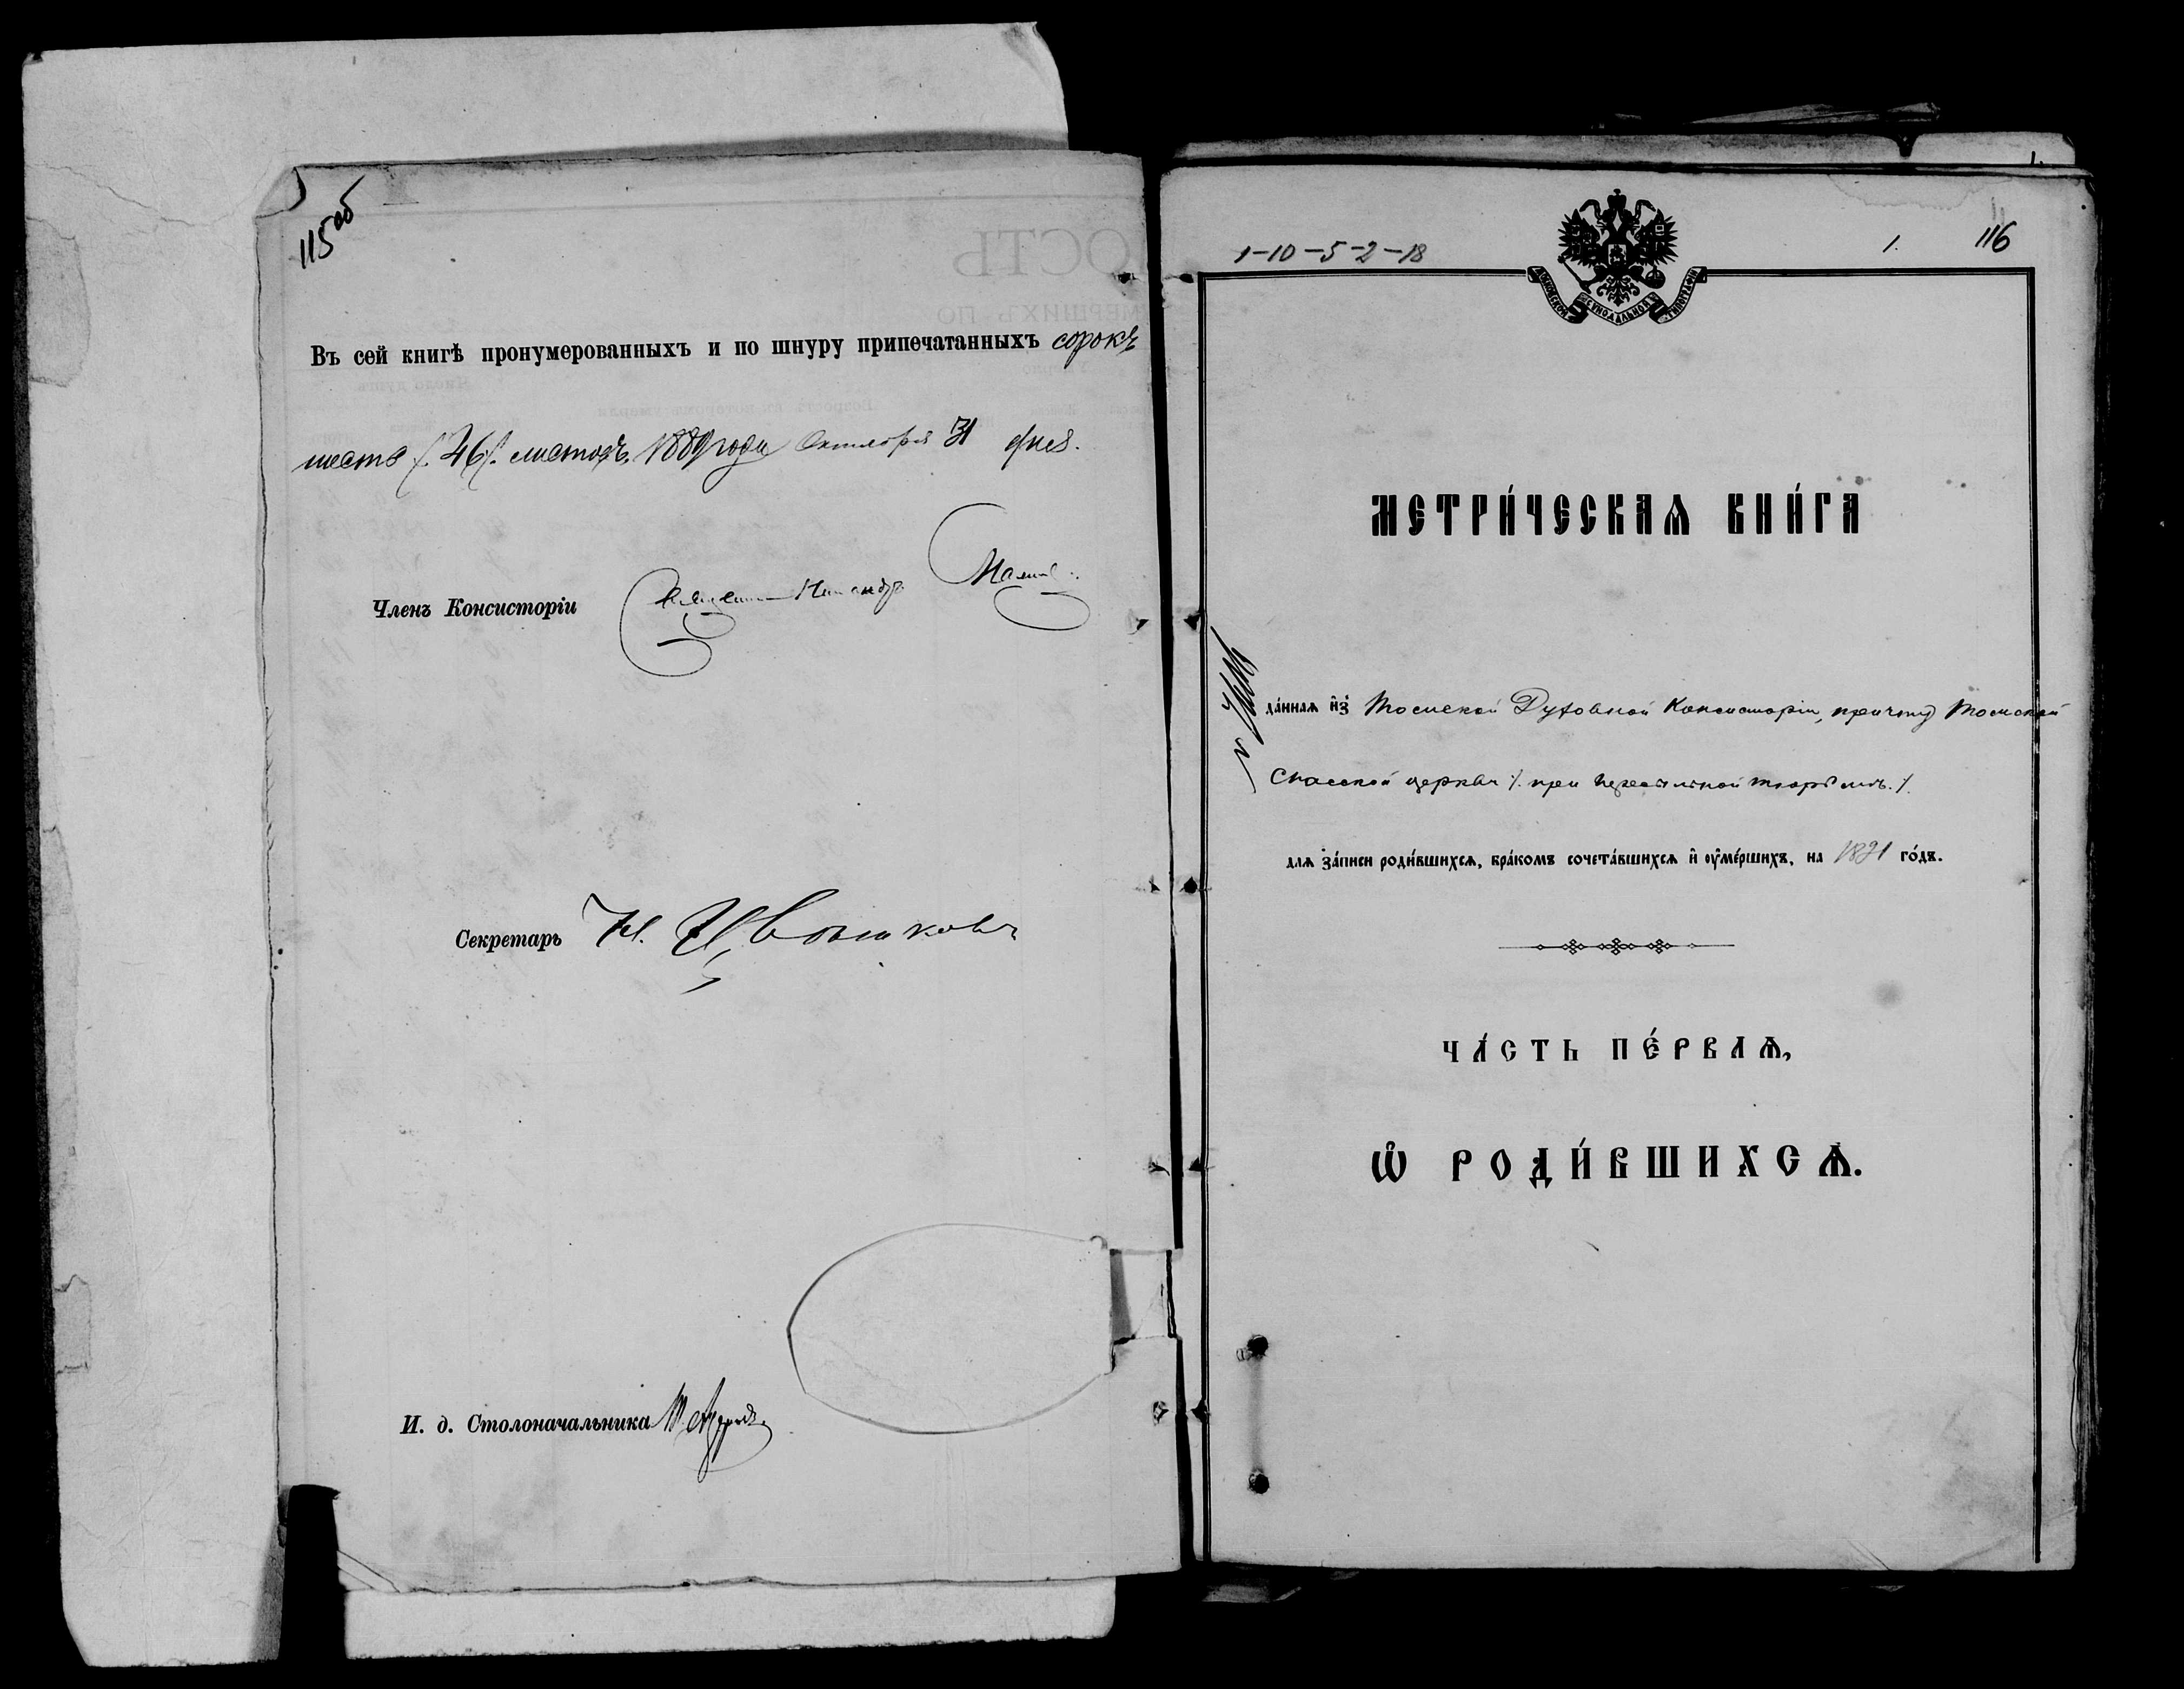 115об
Въ сей книгѣ пронумерованныхъ и по шнуру припечатанныхъ сорокъ
шесть /. 46 /. листовъ, 1889 года Октября 31 дня.
Членъ Консисторіи Священникъ Никандръ
Секретарь
И. д. Столоначальника
1-10-5-2-18
1.
116
МОСКОВСКОЙ СѴНОДАЛЬНОЙ ТИПОГРАФІИ
МЕТРИ́ЧЕСКАѦ КНИ́ГА
да́ннаѧ и҆з̾ Томской Духовной Консисторіи, причту Томской
Спасской церкви /. при пересыльной тюрьмѣ. /.
длѧ за́писи роди́вшихсѧ, бра́комъ сочета́вшихсѧ и҆ оу҆ме́ршихъ, на 1891 го́дъ.
ЧА́СТЬ ПЕ́РВАѦ,
Ѽ РОДИ́ВШИХСѦ.